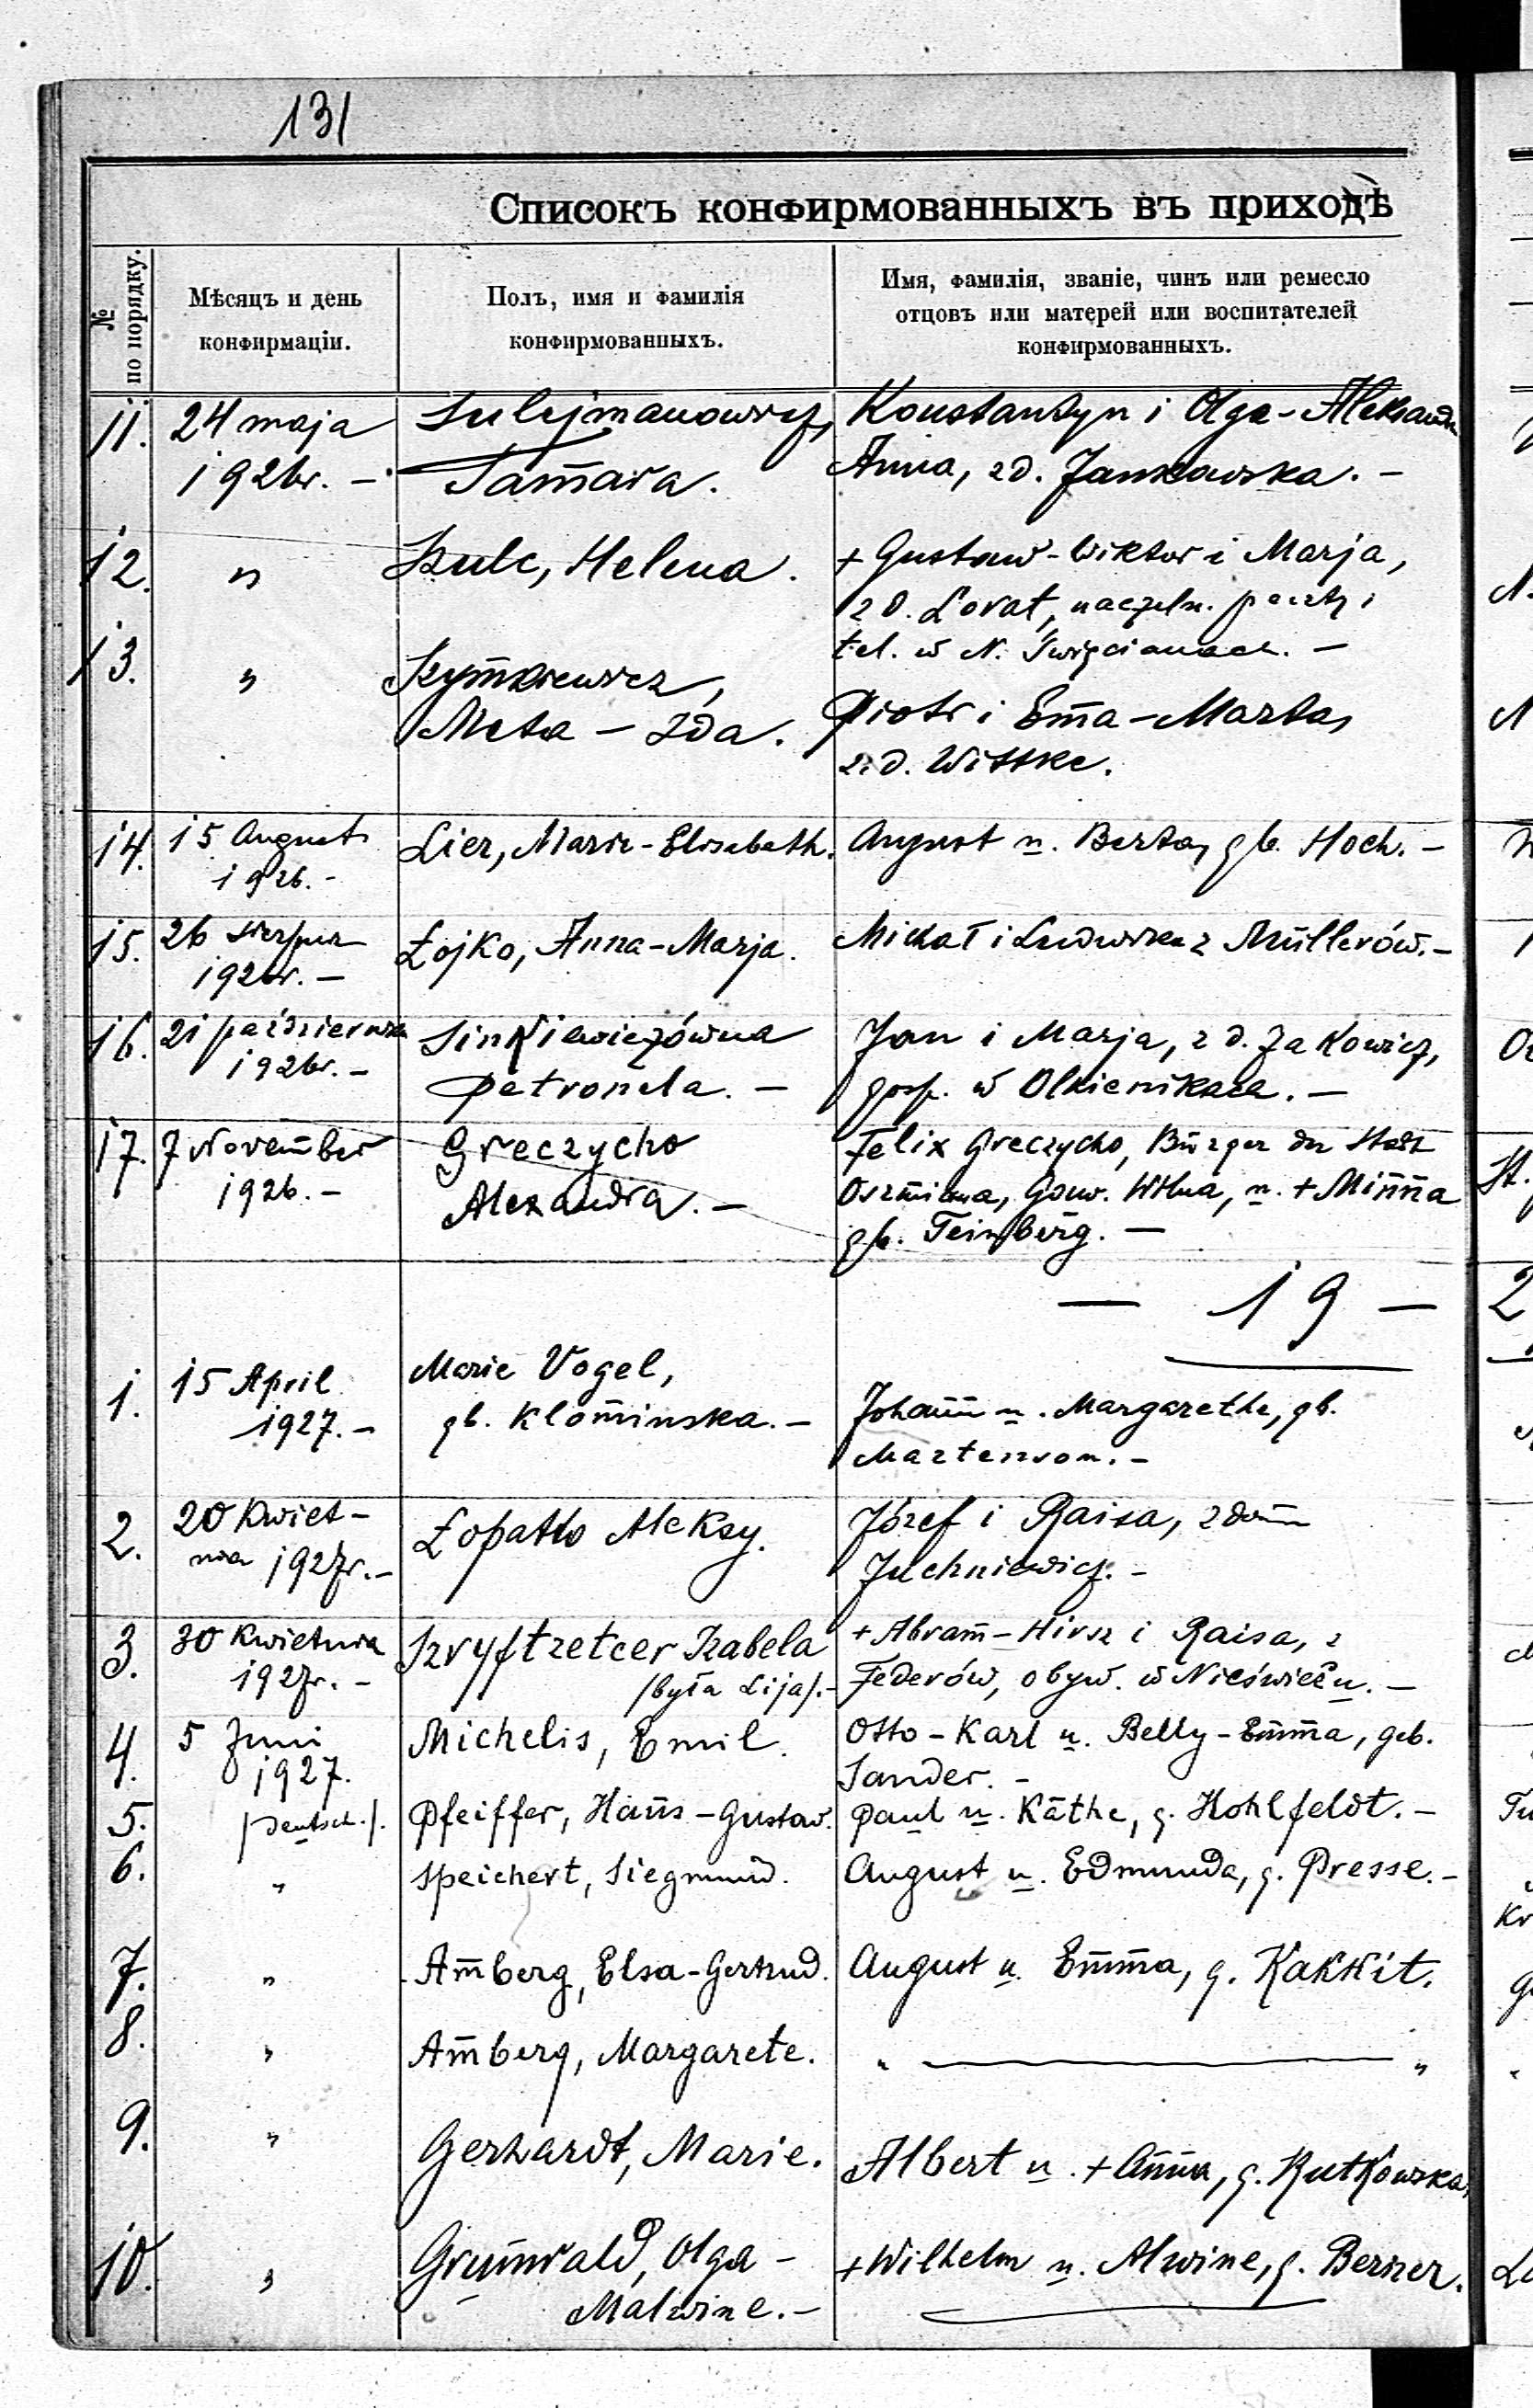 131
Списокъ конфирмованныхъ въ приходѣ
№ по порядку.
Мѣсяцъ и день
конфирмаціи.
Полъ, имя и фамилія
конфирмованныхъ.
Имя, фамилія, званіе, чинъ или ремесло
отцовъ или матерей или воспитателей
конфирмованныхъ.
11. 24 maja Sulejmanowicz, Konstantyn i Olga-Aleksandra
1926r. – Tamara. Anna, z d. Jankowska. –
12. " Szulc, Helena. + Gustaw-Wiktor i Marja,
z d. Lorat, naczeln. poczty i
tel. w N. Święcianach. –
13. " Szymkiewicz,
Meta – Ida. Piotr i Ema-Marta,
z d. Wittke.
14. 15 August Lier, Marie-Elisabeth. August u. Berta, gb. Hoch. –
1926. –
15. 26 sierpnia Łojko, Anna-Marja. Michał i Ludwika z Müllerów. –
1926r. –
16. 21 października Sinkiewiczówna Jan i Marja, z d. Jakowicz,
1926r. – Petronela. – gosp. w Olkienikach. –
17. 7 November Greczycho Felix Greczycho, Bürger der Stadt
1926. – Alexandra. – Oszmiana, Gouv. Wilna, u. + Minna
gb. Feinberg. –
– 19 –
1. 15 April Marie Vogel,
1927. – gb. Klominska. – Johann u. Margarethe, gb.
Martenson. –
2. 20 Kwiet- Łopatto Aleksy. Józef i Raisa, z dom
nia 1927r. – Juchniewicz. –
3. 30 Kwietnia Szryftzetcer Izabela + Abram-Hirsz i Raisa, z
1927r. – /była Lija/. – Federów, obyw. w Nieświeżu. –
4. 5 Juni Michelis, Emil. Otto-Karl u. Belly-Emma, geb.
1927. Sander. –
5. /Deutsch./. Pfeiffer, Hans-Gustav. Paul u. Käthe, g. Hohlfeldt. –
6. " Speichert, Siegmund. August u. Edmunda, g. Presse. –
7. " Amberg, Elsa-Gertrud. August u. Emma, g. Kakkit.
8. " Amberg, Margarete. " — "
9. " Gerhardt, Marie. Albert u. + Anna, g. Rutkowska.
10. " Grunwald, Olga – + Wilhelm u. Alwine, g. Berner.
Malwine. –